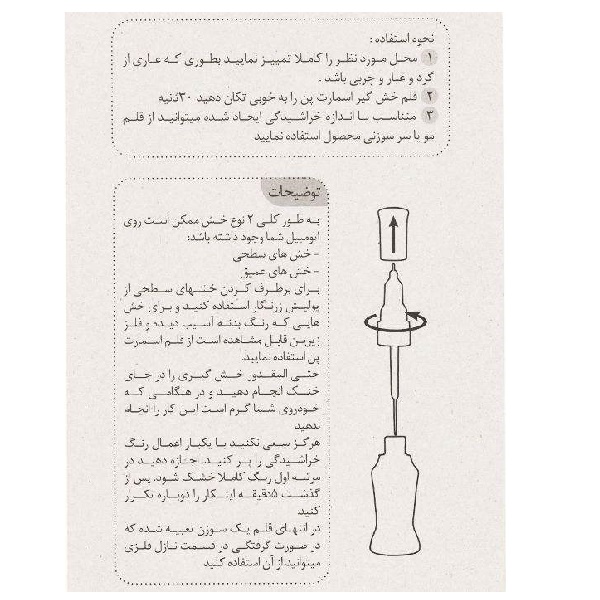 نحوه استفاده :
۱ محل مورد نظر را کاملا تمییز نمایید بطوری که عاری از
گرد و غبار و چربی باشد .
۲ قلم خش گیر اسمارت پن را به خوبی تکان دهید ۳۰ثنیه
۳ متناسب با اندازه خراشیدگی ایجاد شده میتوانید از قلم
مو یا سر سوزنی محصول استفاده نمایید
توضیحات
به طور کلی ۲ نوع خش ممکن است روی
اتومبیل شما وجود داشته باشد:
- خش های سطحی
- خش های عمیق
برای برطرف کردن خشهای سطحی از
پولیش زرنگار استفاده کنید و برای خش
هایی که رنگ بدنه آسیب دیده و فلز
زیرین قابل مشاهده است از قلم اسمارت
پن استفاده نمایید.
حتی المقدور خش گیری را در جای
خنک انجام دهید و در هنگامی که
خودروی شما گرم است این کار را انجام
ندهید.
هرگز سعی نکنید با یکبار اعمال رنگ
خراشیدگی را پر کنید. اجازه دهید در
مرتبه اول رنگ کاملا خشک شود. پس از
گذشت ۱۵دقیقه اینکار را دوباره تکرار
کنید.
در انتهای قلم یک سوزن تعبیه شده که
در صورت گرفتگی در قسمت نازل فلزی
میتوانید از آن استفاده کنید